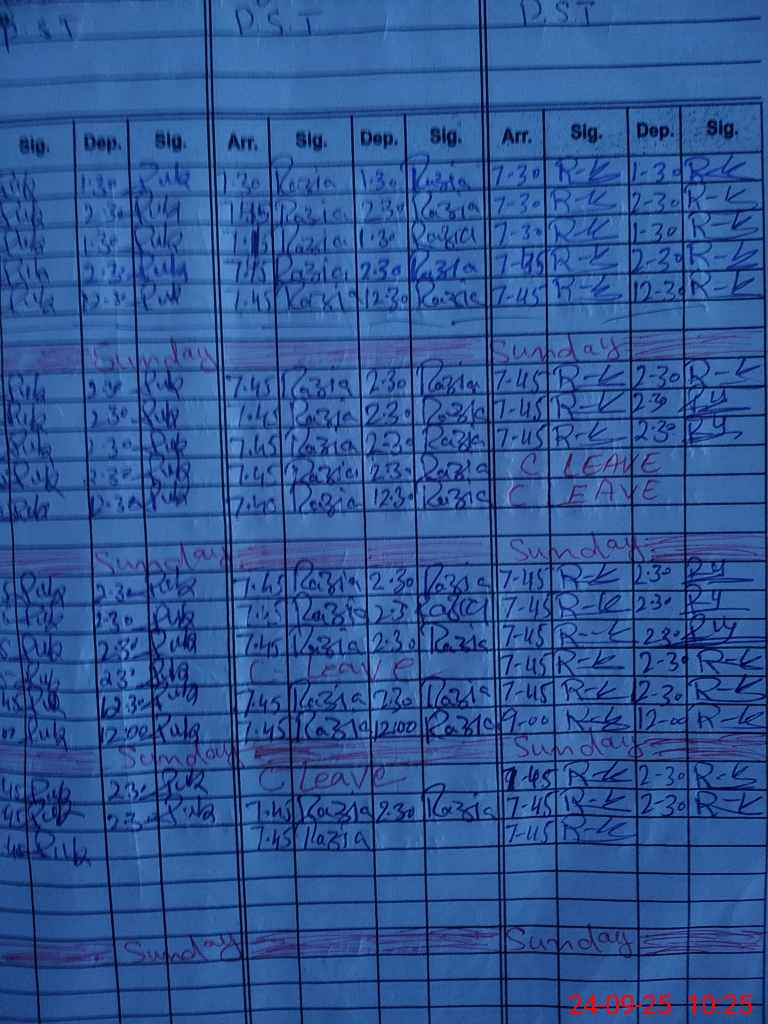 P.S.T P.S.T P.S.T
Sig. Dep. Sig. Arr. Sig. Dep. Sig. Arr. Sig. Dep. Sig.
1.30 1.30 Razia 1.30 Razia 7-30 R-K 1-30 R-K
2.30 Razia 2.30 Razia 7-30 R-K 2-30 R-K
1.30 Razia 1.30 Razia 7-30 R-K 1-30 R-K
2.30 7.45 Razia 2.30 Razia 7-45 R-K 2-30 R-K
12.30 7.45 Razia 12.30 Razia 7-45 R-K 12-30 R-K
Sunday Sunday
2.30 7.45 Razia 2.30 Razia 7-45 R-K 2-30 R-K
2.30 7.45 Razia 2.30 Razia 7-45 R-K 2-30
2.30 7.45 Razia 2.30 Razia 7-45 R-K 2-30
2.30 7.45 Razia 2.30 Razia C LEAVE
12.30 7.40 Razia 12.30 Razia C EAVE
Sunday Sunday
2.30 7.45 Razia 2.30 Razia 7-45 R-K 2-30
2.30 7.45 Razia 2.3 Razia 7-45 R-K 2-30
2.30 7.45 Razia 2.30 Razia 7-45 R-K 2-30
2.30 C. Leave 7-45 R-K 2-30 R-K
45 12.30 7.45 Razia Razia 7-45 R-K 12-30 R-K
12.00 7.45 Razia 12.00 Razia 9-00 R-K 12-00 R-K
Sunday Sunday
45 2.30 C Leave 7-45 R-K 2-30 R-K
45 2.30 7.45 Razia 2.30 Razia 7-45 R-K 2-30 R-K
7.45 Razia 7-45 R-K
Sunday Sunday
24-09-25 10:25